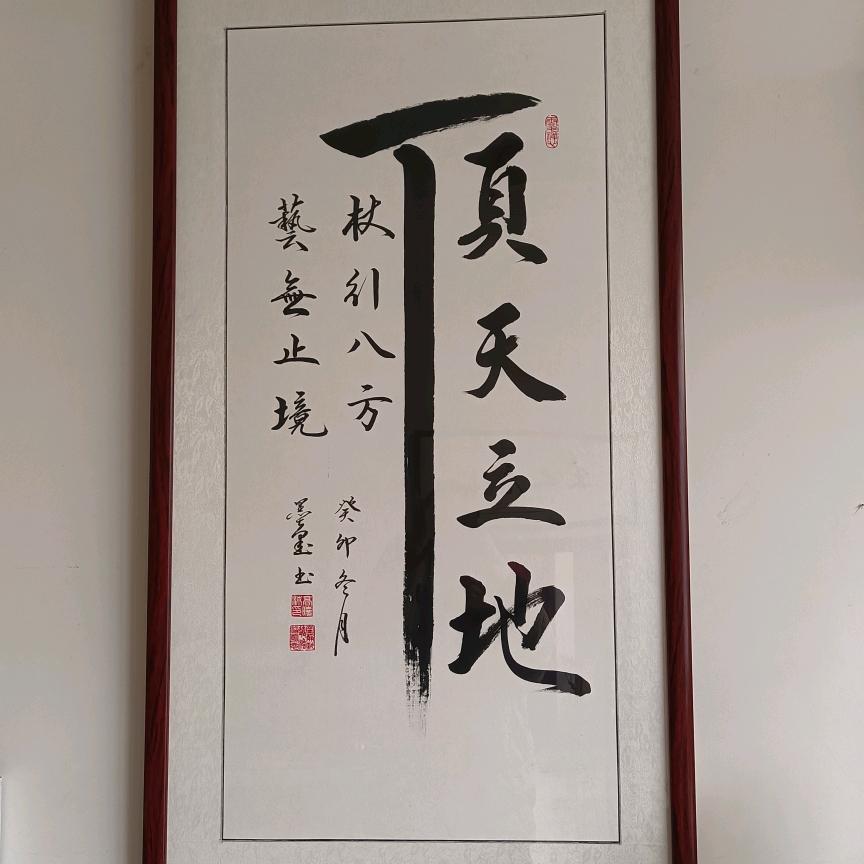 頂天立地
杖引八方
藝無止境
癸卯冬月
墨書